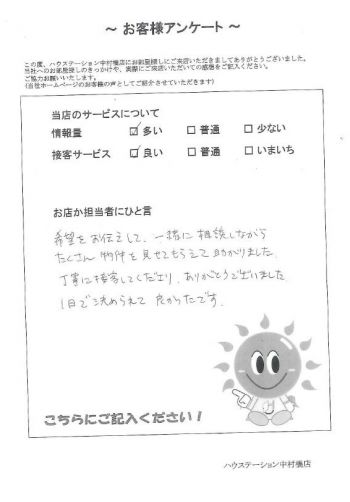 ～ お客様アンケート ～
この度、ハウステーション中村橋店にお部屋探しにご来店いただきましてありがとうございました。
当社へのお部屋探しのきっかけや、実際にご来店いただいての感想をご記入ください。
ご協力お願いいたします。
(当社ホームページのお客様の声としてご紹介させていただきます)
当店のサービスについて
情報量 ☑ 多い ☐ 普通 ☐ 少ない
接客サービス ☑ 良い ☐ 普通 ☐ いまいち
お店か担当者にひと言
希望をお伝えして、一緒に相談しながら
たくさん物件を見せてもらえて助かりました。
丁寧に接客してくださり、ありがとうございました
1日で決められて良かったです。
こちらにご記入ください！
ハウステーション中村橋店